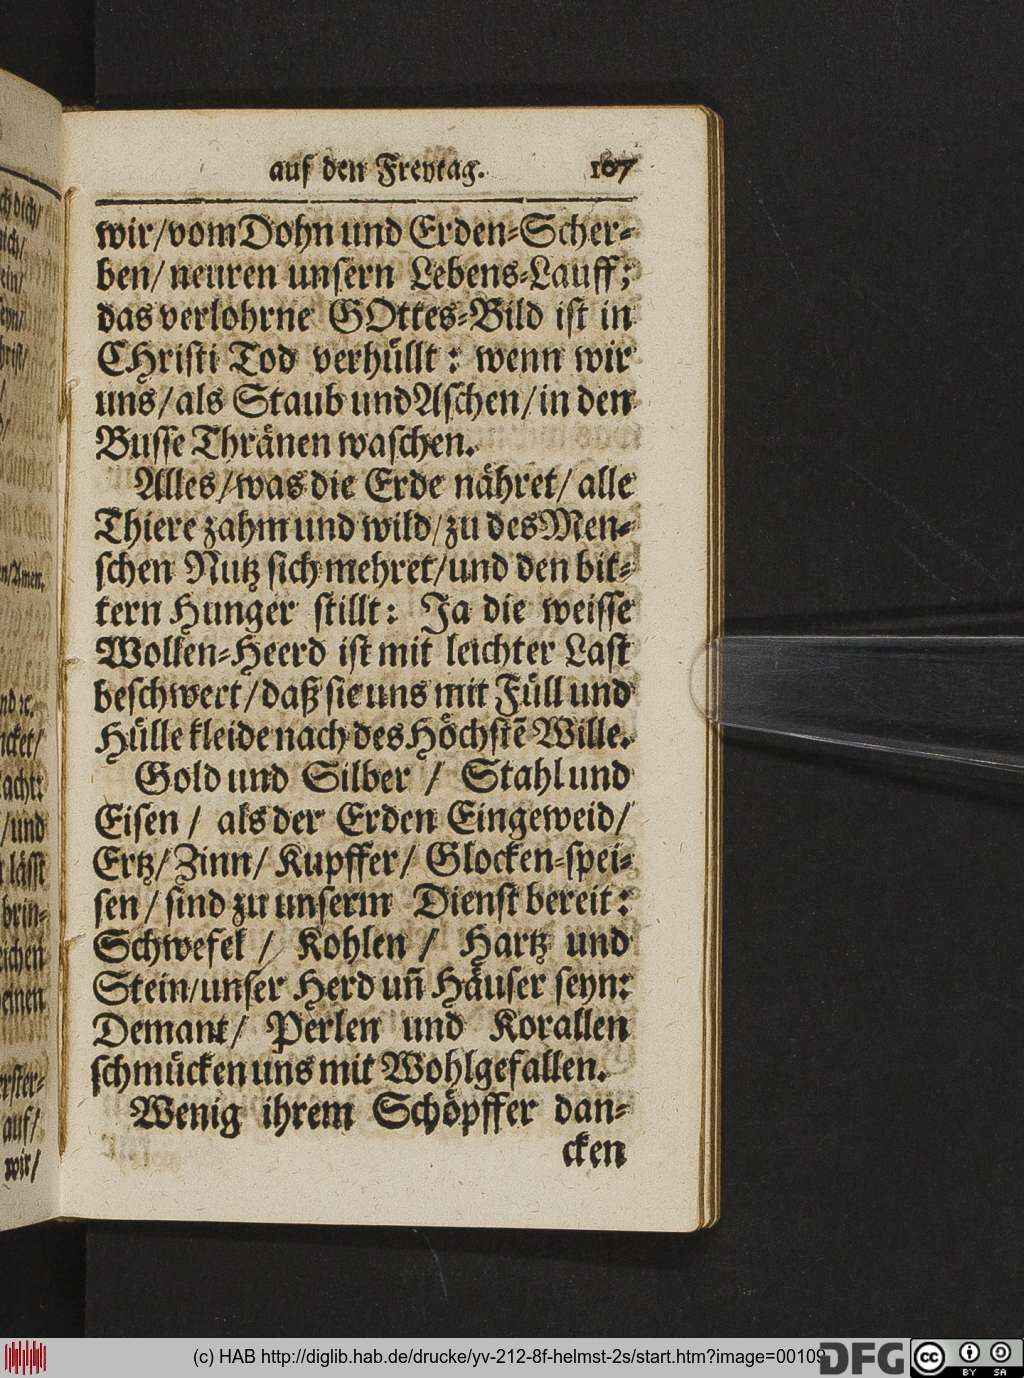 auf den Freytag. 107
wir/vom Dohn und Erden-Scher-
ben/ neuren unsern Lebens-Lauff;
das verlohrne GOttes-Bild ist in
CHristi Tod verhüllt: wenn wir
uns/als Staub und Aschen/in den
Busse Thränen waschen.
Alles/was die Erde nähret/ alle
Thiere zahm und wild/zu des Men-
schen Nutz sich mehret/und den bit-
tern Hunger stillt: Ja die weisse
Wollen-Heerd ist mit leichter Last
beschwert/daß sie uns mit Füll und
Hülle kleide nach des Höchstē Wille.
Gold und Silber / Stahl und
Eisen / als der Erden Eingeweid/
Ertz/Zinn/Kupffer/ Glocken-spei-
sen/sind zu unserm Dienst bereit:
Schwefel / Kohlen / Hartz und
Stein/unser Herd uñ Häuser seyn:
Demant/ Perlen und Korallen
schmücken uns mit Wohlgefallen.
Wenig ihrem Schöpffer dan-
cken
ch dich/
n/Amen.
nd ꝛc.
icket/
acht:
/und
lässt
brin-
eichen
einen
erster-
auf/
wir/
(c) HAB http://diglib.hab.de/drucke/yv-212-8f-helmst-2s/start.htm?image=00109
DFG
cc BY SA